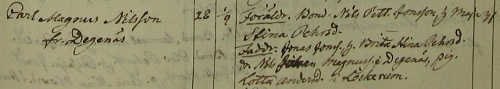 Carl Magnus Nilsson
fr. Degenäs
28 1/9
Föräldr. Bond. Nils Pett. Jonsson, &
Stina Pehrsd.
Faddr. Jonas Jons. & Brita Stina Pehrsd.
dr. Nils Johan Magnuss. i Degenäs, pig.
Lotta Andersd. Löckerum.